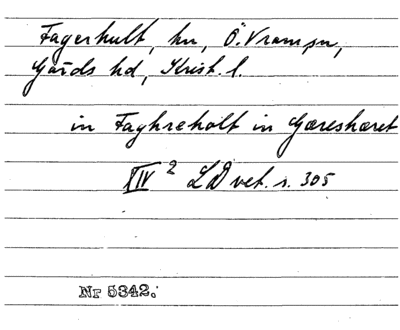 Fagerhult, hn, Ö. Vram sn,
Gärds hd, Krist. l.
in Faghreholt in Gæreshæret
XIV 2 LD vet. s. 305
Nr 5342.